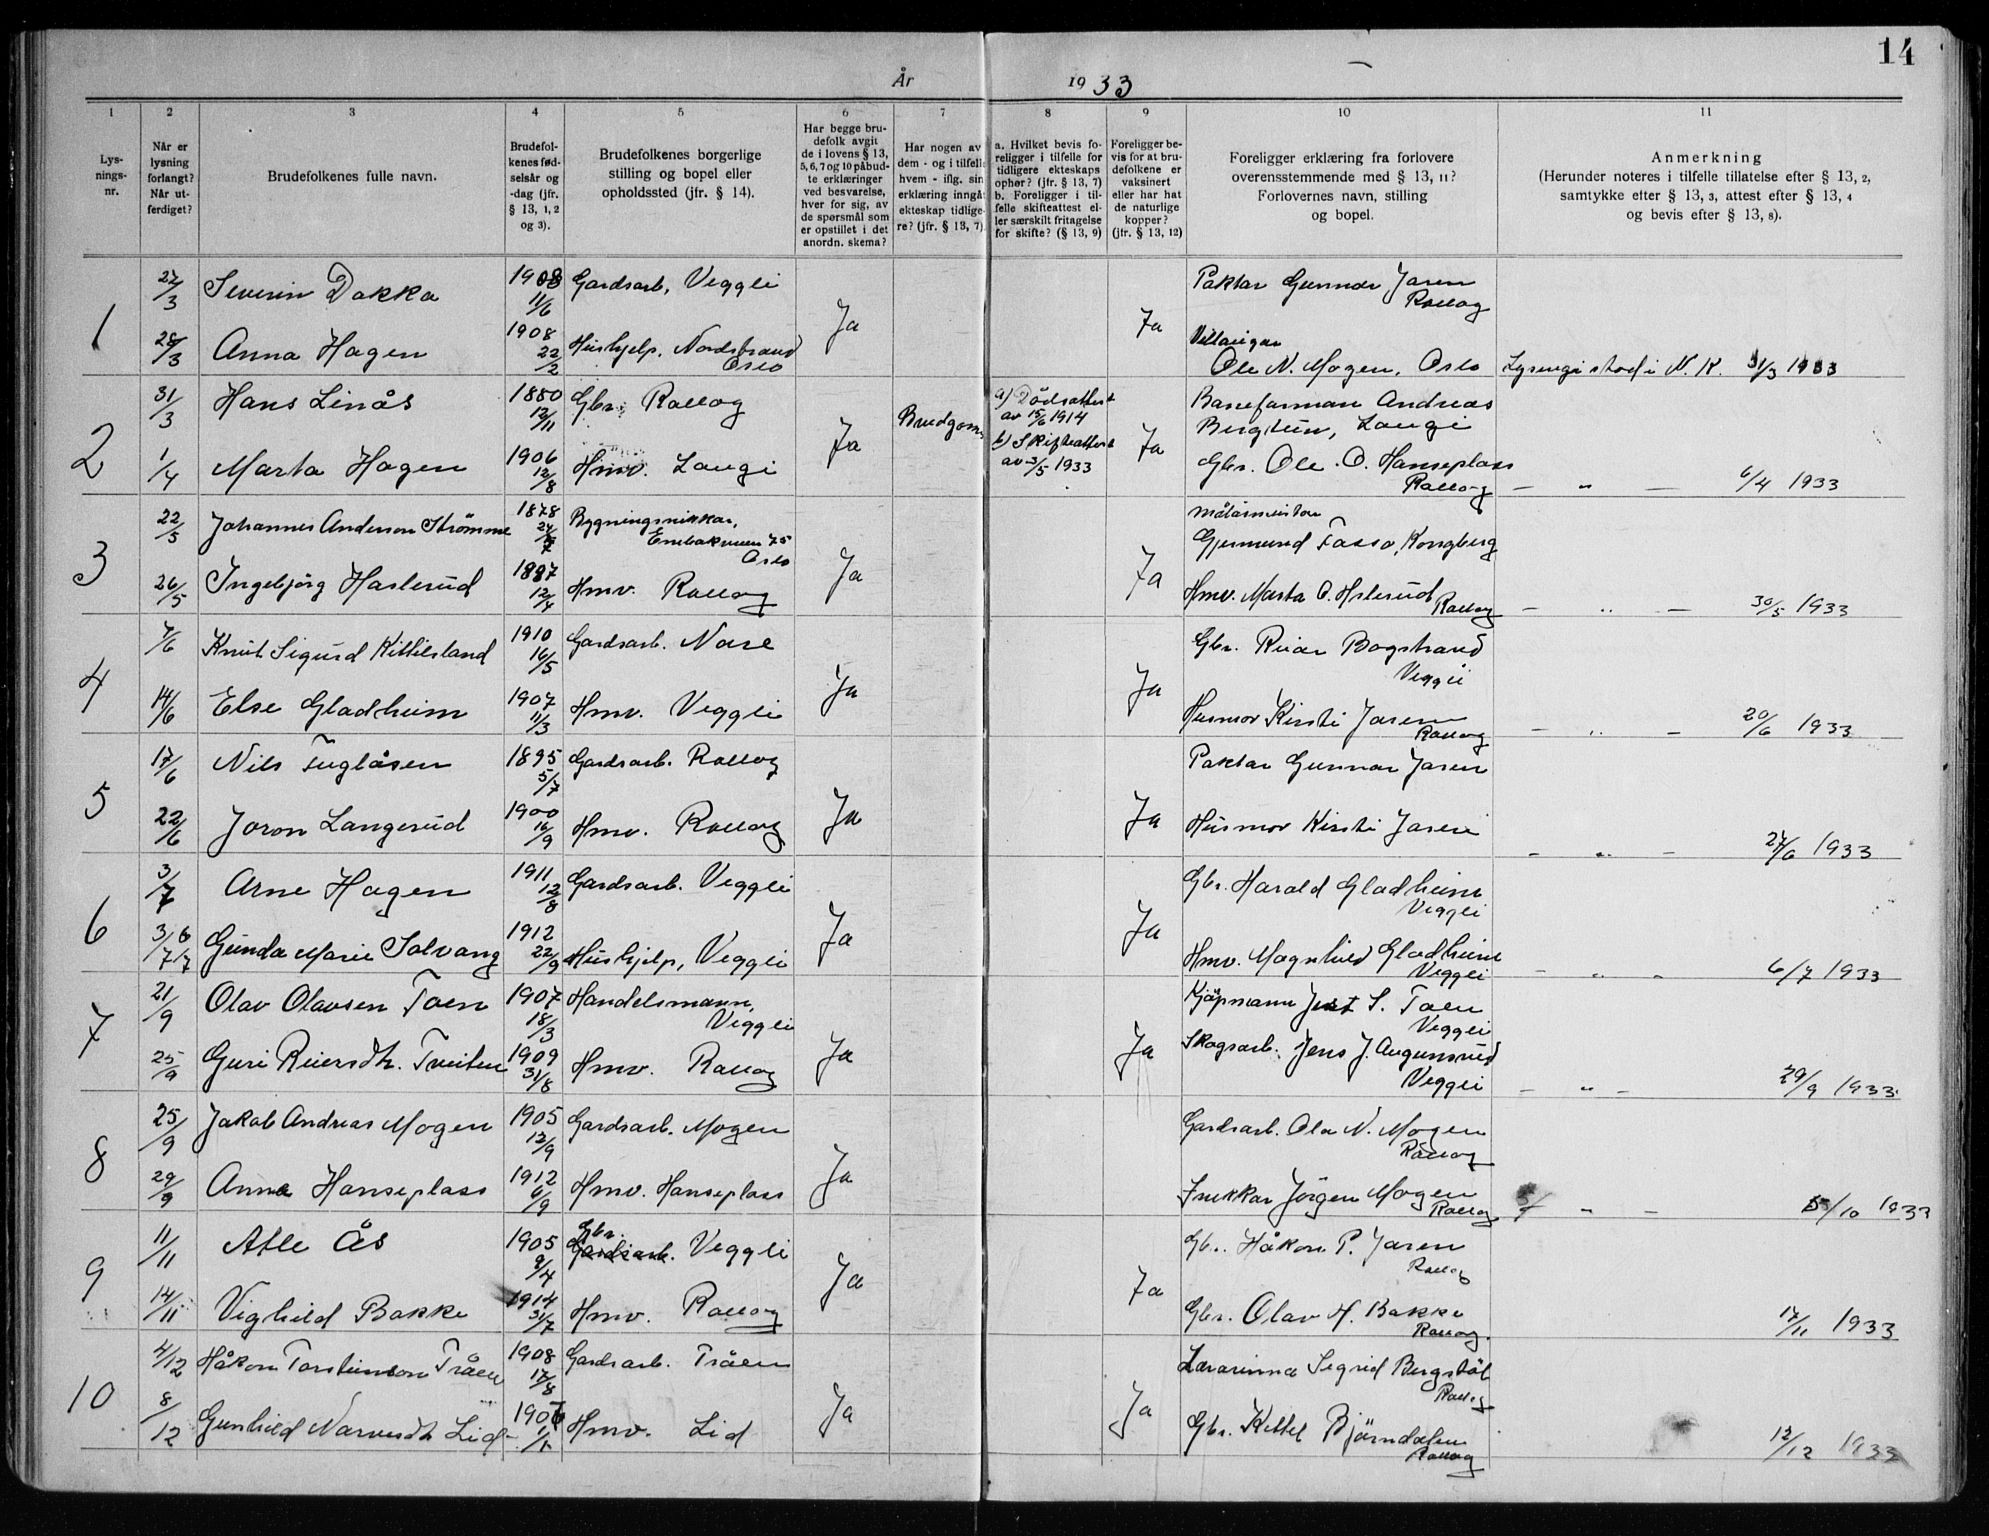 14
År 1933
1
2
3
4
5
6
7
8
9
10
11
Lys-
nings-
nr.
Når er
lysning
forlangt?
Når ut-
ferdiget?
Brudefolkenes fulle navn.
Brudefol-
kenes fød-
selsår og
-dag (jfr.
§ 13, 1, 2
og 3).
Brudefolkenes borgerlige
stilling og bopel eller
opholdssted (jfr. § 14).
Har begge bru-
defolk avgit
de i lovens § 13,
5, 6, 7 og 10 påbud-
te erklæringer
ved besvarelse,
hver for sig, av
de spørsmål som
er opstillet i det
anordn. skema?
Har nogen av
dem - og i tilfelle
hvem - iflg. sin
erklæring inngåt
ekteskap tidlige-
re? (jfr. § 13, 7).
a. Hvilket bevis fo-
religger i tilfelle for
tidligere ekteskaps
ophør? (jfr. § 13, 7)
b. Foreligger i til-
felle skifteattest el-
ler særskilt fritagelse
for skifte? (§ 13, 9)
Foreligger be-
vis for at bru-
defolkene er
vaksinert
eller har hat
de naturlige
kopper?
(jfr. § 13, 12)
Foreligger erklæring fra forlovere
overensstemmende med § 13, 11?
Forlovernes navn, stilling
og bopel.
Anmerkning
(Herunder noteres i tilfelle tillatelse efter § 13, 2,
samtykke efter § 13, 3, attest efter § 13, 4
og bevis efter § 13, 8).
1
27/3 Severin Dokka 1908 11/6 Gardsarb. Veggli Ja Ja Paktar Gunnar Jaren
Rollag
28/3 Anna Hagen 1908 22/2 Hushjelp, Nordstrand
Oslo
Ole N. Mogen, Oslo Lysingi stod i N. K. 31/3 1933
2
31/3 Hans Linås 1880 12/11 Gbr. Rollag Ja Brudgomen
a) Dødsattest
av 15/6 1914
b) Skifteattest
av 3/5 1933
Ja Andreas
Bergtun, Laugi
1/4 Marta Hagen 1906 12/8 Hmv. Laugi Gbr. Ole O. Hanseplass
Rollag — " — 6/4 1933
3
22/5 Johannes Anderson Strømme 1878 Bygningsnikkar,
75
Oslo
Ja Ja Målarmeistar
Gjermund Fasso, Kongberg
26/5 Ingebjörg Haslerud 1887 12/4 Hmv. Rollag Hmv. Marta O. Hslerud Rollag — " — 30/5 1933
4
7/6 Knut Sigurd Kittilsland 1910 16/5 Gardsarb. Nore Ja Ja Gbr. Reiar Bogstrand
Veggli
14/6 Else Gladheim 1907 11/3 Hmv. Veggli Husmor Kirsti Jaren
Rollag — " — 20/6 1933
5
17/6 Nils Fuglåsen 1895 5/7 Gardsarb. Rollag Ja Ja Paktar Gunnar Jaren
22/6 Joron Langerud 1900 16/9 Hmv. Rollag Husmor Kirsti Jaren
— " — 27/6 1933
6
3/7 Arne Hagen 1911 12/8 Gardsarb. Veggli Ja Ja Gbr. Harald Gladheim
Veggli
3/7 6/7 Gunda Marie Solvang 1912 22/9 Hushjelp, Veggli Hmv. Magnhild Gladheim
Veggli — " — 6/7 1933
7
21/9 Olav Olavsen Toen 1907 18/3 Handelsmann,
Veggli
Ja Ja Kjöpmann Just S. Toen
Veggli
25/9 Guri Reiersdtr. Tveiten 1909 31/8 Hmv. Rollag Skogsarb. Jens J. Augunsrud
Veggli — " — 29/9 1933
8
25/9 Jakob Andreas Mogen 1905 12/9 Gardsarb. Mogen Ja Gardsarb. Ola N. Mogen
Rollag
29/9 Anna Hanseplass 1912 6/9 Hmv. Hanseplass Snikkar Jörgen Mogen
Rollag " — 5/10 1933
9
11/11 Atle Ås 1905 9/4 Gbr. Gardsarb. Veggli Ja Ja Gbr. Håkon P. Jaren
Rollag
14/11 Vighild Bakke 1914 31/7 Hmv. Rollag Gbr. Olav H. Bakke
Rollag. 17/11 1933
10
4/12 Håkon Torsteinson Tråen 1908 17/8 Gardsarb. Tråen Ja Ja Lærarinna Sigrid Bergstöl
Rollag
8/12 Gunhild Narvesdtr. Lid 1/1 Hmv. Lid Gbr. Kittel Bjørndalen
Rollag 12/12 1933